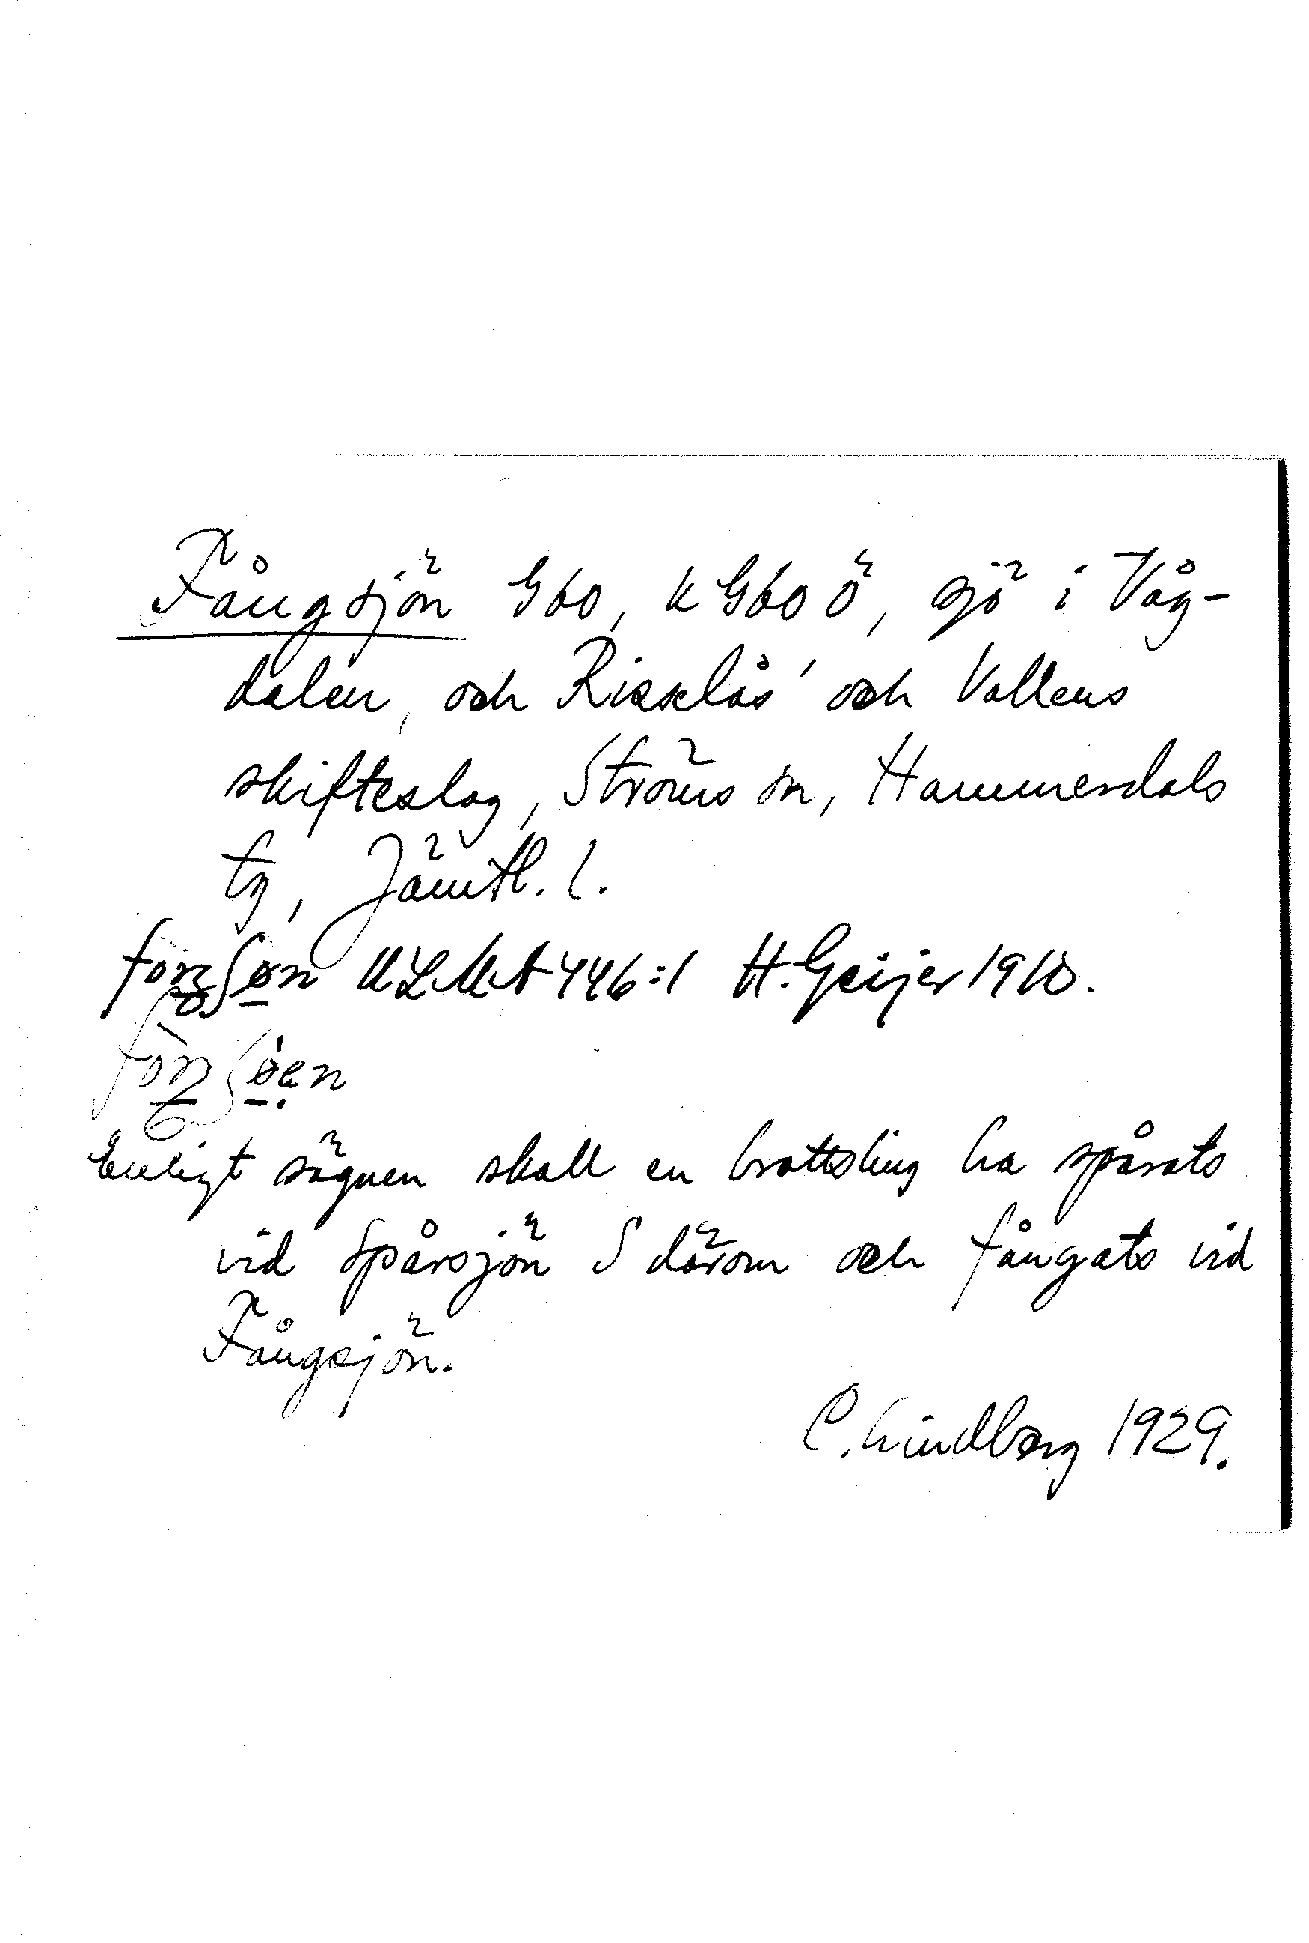 Fångsjön G60, k G60 Ö, sjö i Våg-
dalen, och Risselås' och Vallens
skifteslag, Ströms sn, Hammerdals
tg, Jämtl. l.
ULMA 446:1 H. Geijer 1910.
Enligt sägnen skall en brottsling ha spårats
vid Spårsjön S därom och fångats vid
Fångsjön.
C. Lindberg 1929.